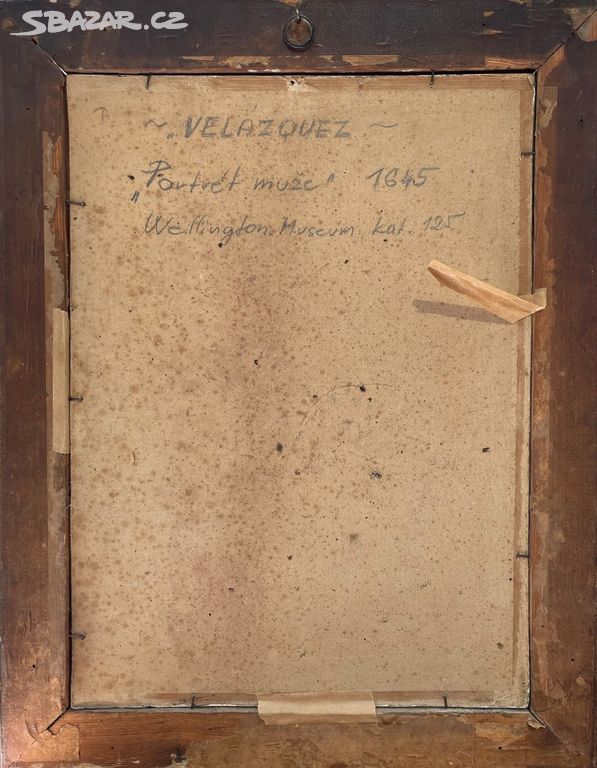 SBAZAR.CZ
~ VELAZQUEZ ~
„Portrét muže" 1645
Wellington. Museum kat. 125
SBAZAR.CZ